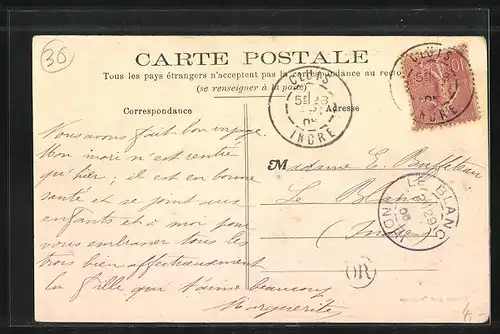 36
CARTE POSTALE
Tous les pays étrangers n'acceptent pas la correspondance au recto
(se renseigner à la poste)
Correspondance
Adresse
CLUIS
INDRE
CLUIS
INDRE
Nous avons fait bon voyage.
Mon mari n'est rentré
qu'hier ; il est en bonne
santé et se joint aux
enfants et à moi pour
vous embrasser tous les
trois bien affectueusement
la fille qui t'aime beaucoup
Marguerite
Madame E.
Le Blanc
(Indre)
LE BLANC
INDRE
OR
4.-